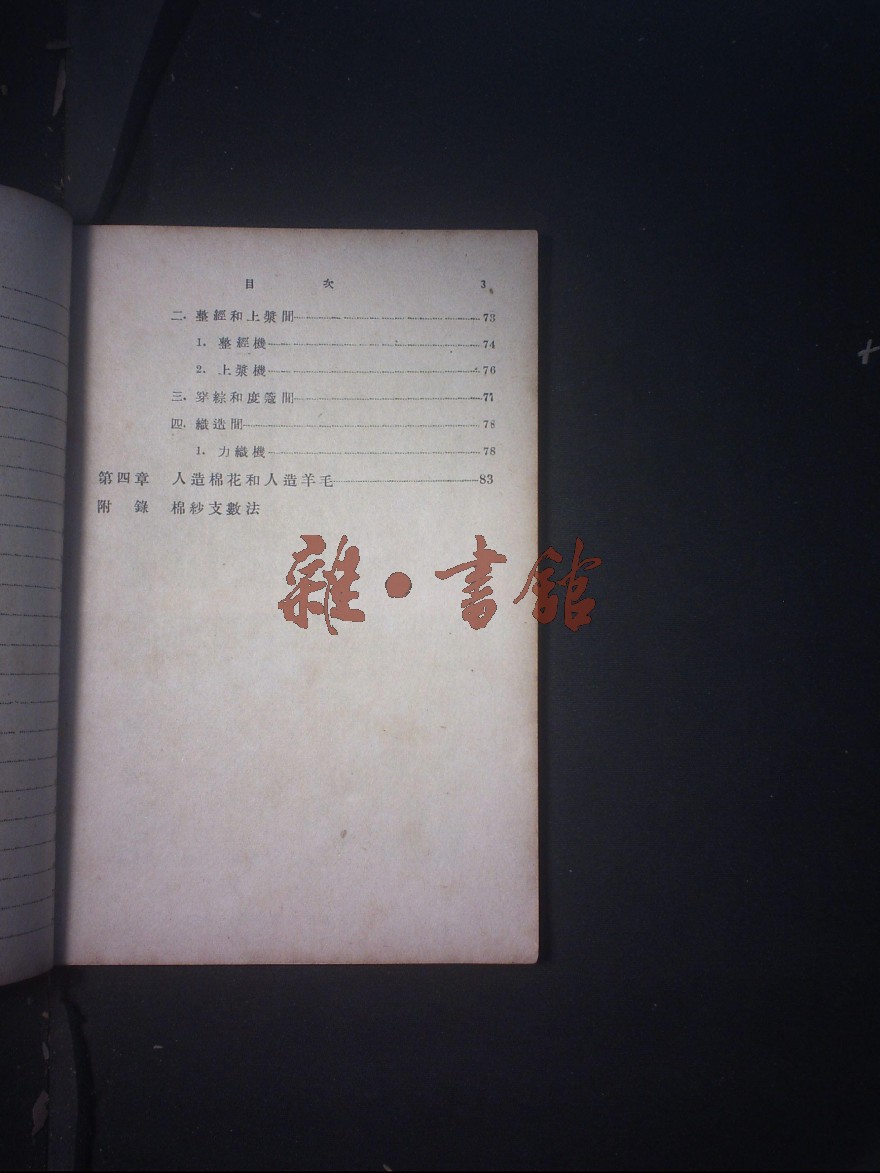 目 次 3
二. 整經和上漿間 73
1. 整經機 74
2. 上漿機 76
三. 穿綜和度筬間 77
四. 織造間 78
1. 力織機 78
第四章 人造棉花和人造羊毛 83
附 錄 棉紗支數法
雜·書館